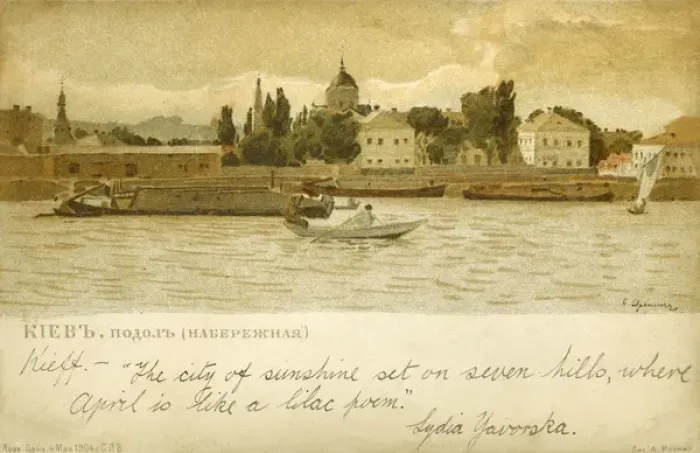 КІЕВЪ. ПОДОЛЪ (НАБЕРЕЖНАЯ)
Kieff. – "The city of sunshine set on seven hills, where
April is like a lilac poem."
Lydia Yavorska.
4 Мая 1904 г. С.П.Б.